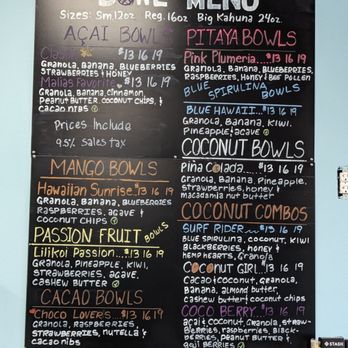 BOWL MENU
Sizes: Sm 12oz Reg. 16oz Big Kahuna 24oz.
AÇAI BOWLS
Classic $13 16 19
GRANOLA, BANANA, BLUEBERRIES
STRAWBERRIES & HONEY
Malias Favorite $13 16 19
GRANOLA, BANANA, CINNAMON,
PEANUT BUTTER, COCONUT CHIPS, &
CACAO NIBS
Prices Include
9.5% sales tax
MANGO BOWLS
Hawaiian Sunrise $13 16 19
GRANOLA, BANANA, BLUEBERRIES
RASPBERRIES, AGAVE &
COCONUT CHIPS
PASSION FRUIT BOWLS
Lilikoi Passion...$13 16 19
GRANOLA, PINEAPPLE, KIWI,
STRAWBERRIES, AGAVE,
CASHEW BUTTER
CACAO BOWLS
Choco Lovers....$13 16 19
GRANOLA, RASPBERRIES,
STRAWBERRIES, NUTELLA &
cacao nibs
PITAYA BOWLS
Pink Plumeria...$13 16 19
GRANOLA, BANANA, BLUEBERRIES,
RASPBERRIES, HONEY & BEE POLLEN
BLUE SPIRULINA BOWLS
BLUE HAWAII...$13 16 19
GRANOLA, BANANA, KIWI,
PINEAPPLE & AGAVE
COCONUT BOWLS
Piña Colada....$13 16 19
GRANOLA, BANANA PINEAPPLE,
strawberries, honey &
macadamia nut butter
COCONUT COMBOS
SURF RIDER...$13 16 19
BLUE SPIRULINA, COCONUT, KIWI
BLACKBERRIES, HONEY &
HEMP HEARTS, GRANOLA
COCONUT GIRL..$13 16 19
CACAO & COCONUT, GRANOLA,
BANANA, almond butter,
cashew butter & coconut chips
COCO BERRY $13 16 19
açai & coconut, Granola, straw-
Berries, raspberries, Black-
berries, Blueberries, honey &
goji BERRIES
STASH